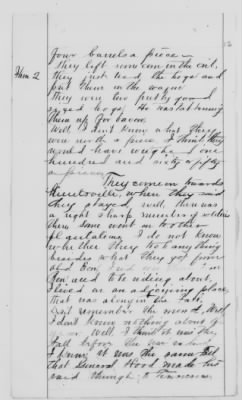 four barrels a piece —
they left some corn in the crib.
Item 2 they just took the hogs and
put them in the wagon
They were two pretty good
sized hogs. He was fattening
them up for bacon
Well I don't know what they
were worth a piece I think they
would have weighed one
hundred and sixty or fifty
a piece.
They come on towards
Huntsville, when they said
they stayed well, there was
a right sharp number of
them some went on to other
plantations I do not know
whether they took anything
besides what they got from
old Ben
Ben used to be riding about,
I lived on an adjoining place,
that was along in the Fall.
I don't remember the month,
I don't know nothing about
Well I think it was the
Fall before the war
I know it was the same Fall
that General Hood made his
raid through to Tennessee